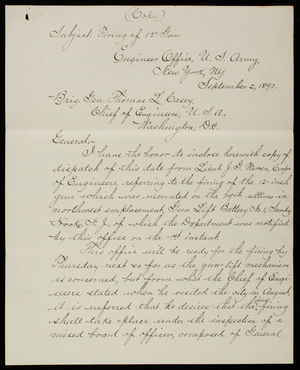 (Copy)
Subject: Firing of 12" Gun.
Engineer Office, U. S. Army,
New York, N.Y.
September 2, 1892.
Brig. Gen. Thomas L. Casey,
Chief of Engineers, U. S. A.
Washington, D.C.
General:-
I have the honor to inclose herewith copy of
dispatch of this date from Lieut. J. G. Warren, Corps
of Engineers, referring to the firing of the 12-inch
gun which was mounted on the 29th ultimo in
northwest emplacement, Gun Lift Battery No. 1, Sandy
Hook, N. J., of which the Department was notified
by this office on the 1st instant.
This office will be ready for the firing by
Thursday next so far as the gun-lift mechanism
is concerned, but from what the Chief of Engi-
neers stated when he visited the city in August,
it is inferred that he desires that the firing
shall take place under the inspection of a
mixed board of officers, composed of General